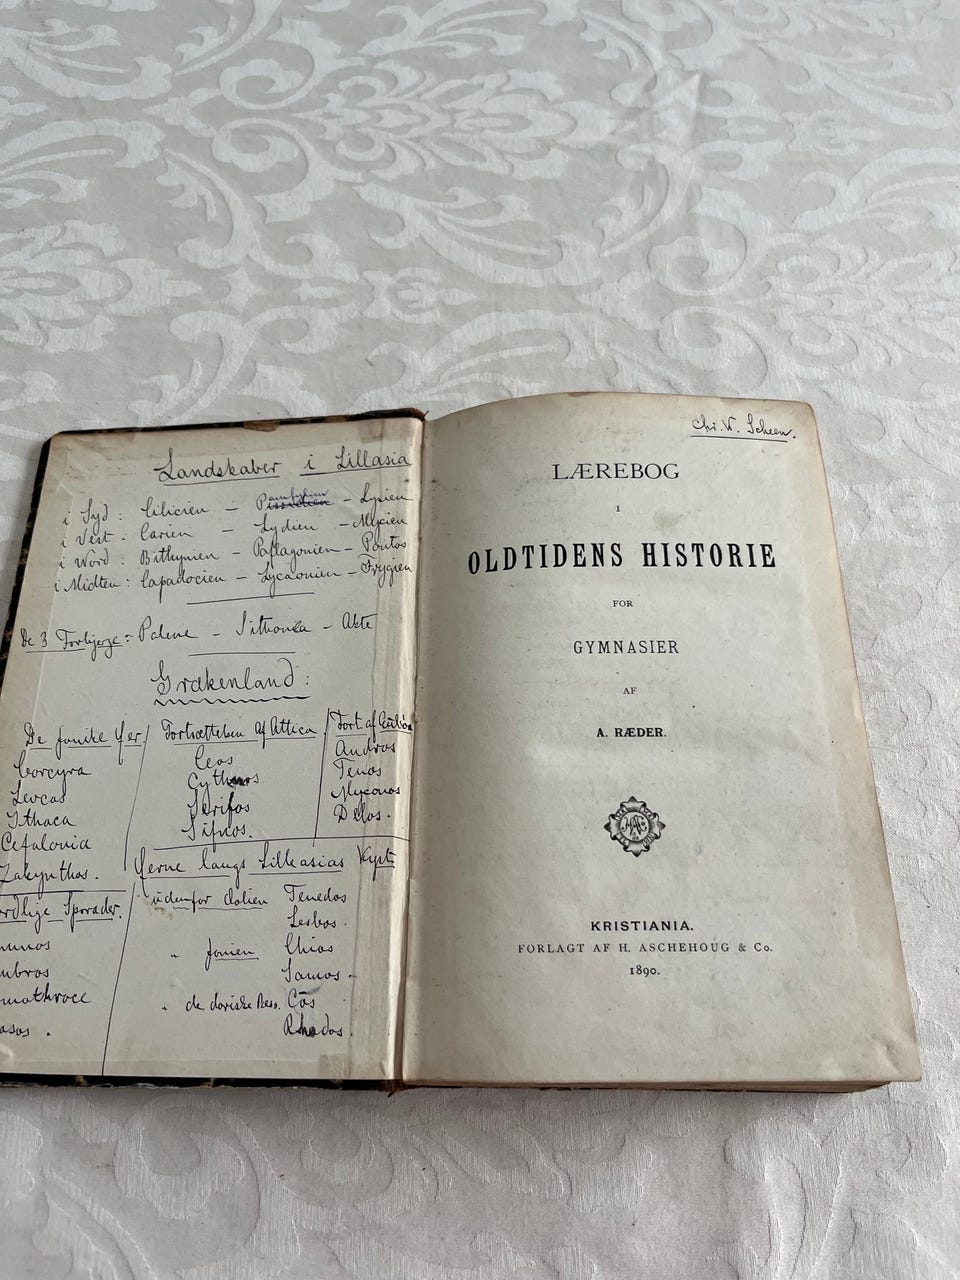 Landskaber i Lillasia
i Syd: Cilicien – Pamfylien – Lysien
i Vest: Carien – Lydien – Mysien
i Nord: Bithynien – Paflagonien – Pontos
i Midten: Capadocien – Lycaonien – Frygien
De 3 Forbjerge: Palene – Sithonia – Akte
Grækenland:
De joniske Øer
Corcyra
Levcas
Ithaca
Cefalonia
Zakynthos.
Fortsættelsen af Attica
Ceos
Cythnos
Serifos
Sifnos.
Fort. af Euböa
Andros
Tenos
Myconos
Delos.
Sporader.
Øerne langs Lilleasias Kyst
udenfor Æolien Tenedos
Lesbos.
" Jonien Chios
Samos –
" de doriske Cos
Rhodos.
Chr. V. Scheen.
LÆREBOG
I
OLDTIDENS HISTORIE
FOR
GYMNASIER
AF
A. RÆDER.
KRISTIANIA.
FORLAGT AF H. ASCHEHOUG & Co.
1890.